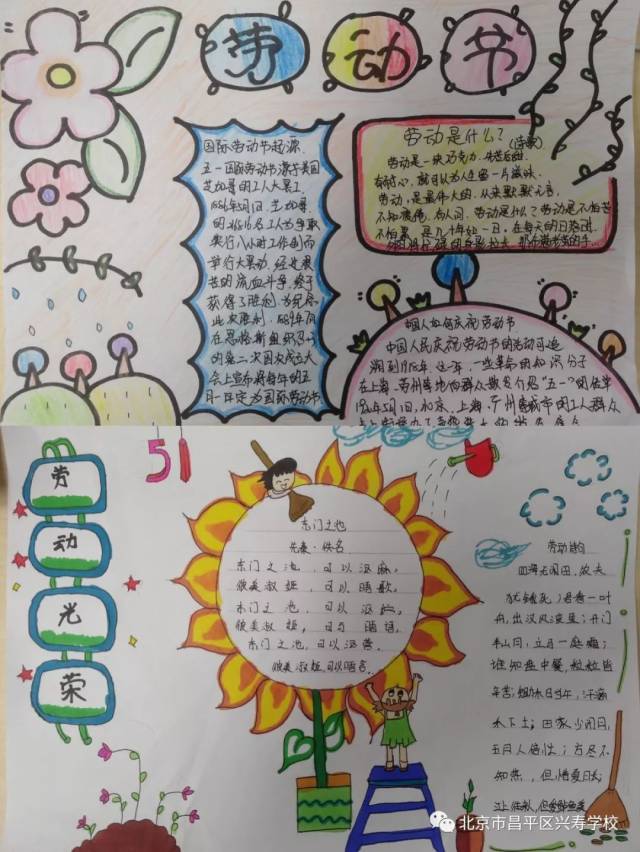 劳动节
国际劳动节起源
五一国际劳动节源于美国
芝加哥的工人大罢工
1886年5月1日，芝加哥
的216000名工人为争取
实行八小时工作制而
举行大罢工，经过艰
苦的流血斗争，终于
获得了胜利。为纪念
此次胜利，1889年7月
的第二次国大成立大
会上宣布将每年的五
月一定为国际劳动节
劳动是什么？（诗歌）
劳动是一块巧克力
劳动，是最伟大的，从来默默无言，
不怕累，是几十年如一日，在每天的日落
中国人如何庆祝劳动节
中国人民庆祝劳动节的活动可追
溯到1918年，这一年，一些革命的知识分子
在上海、苏州等地向群众散发介绍"五一"的传单
1920年5月1日，北京、上海、广州等城市的工人群众
51
劳动光荣
东门之池
先秦·佚名
东门之池，可以沤麻。
彼美淑姬，可以晤歌。
东门之池，可以沤纻。
彼美淑姬，可与晤语。
东门之池，可以沤菅。
彼美淑姬，可以晤言。
四海无闲田，农夫
犹饿死；君看一叶
舟，出没风波里；开门
谁知盘中餐，粒粒皆
辛苦；锄禾日当午，汗滴
禾下土；田家少闲月，
五月人倍忙；力尽不
知热，但惜夏日长；
北京市昌平区兴寿学校